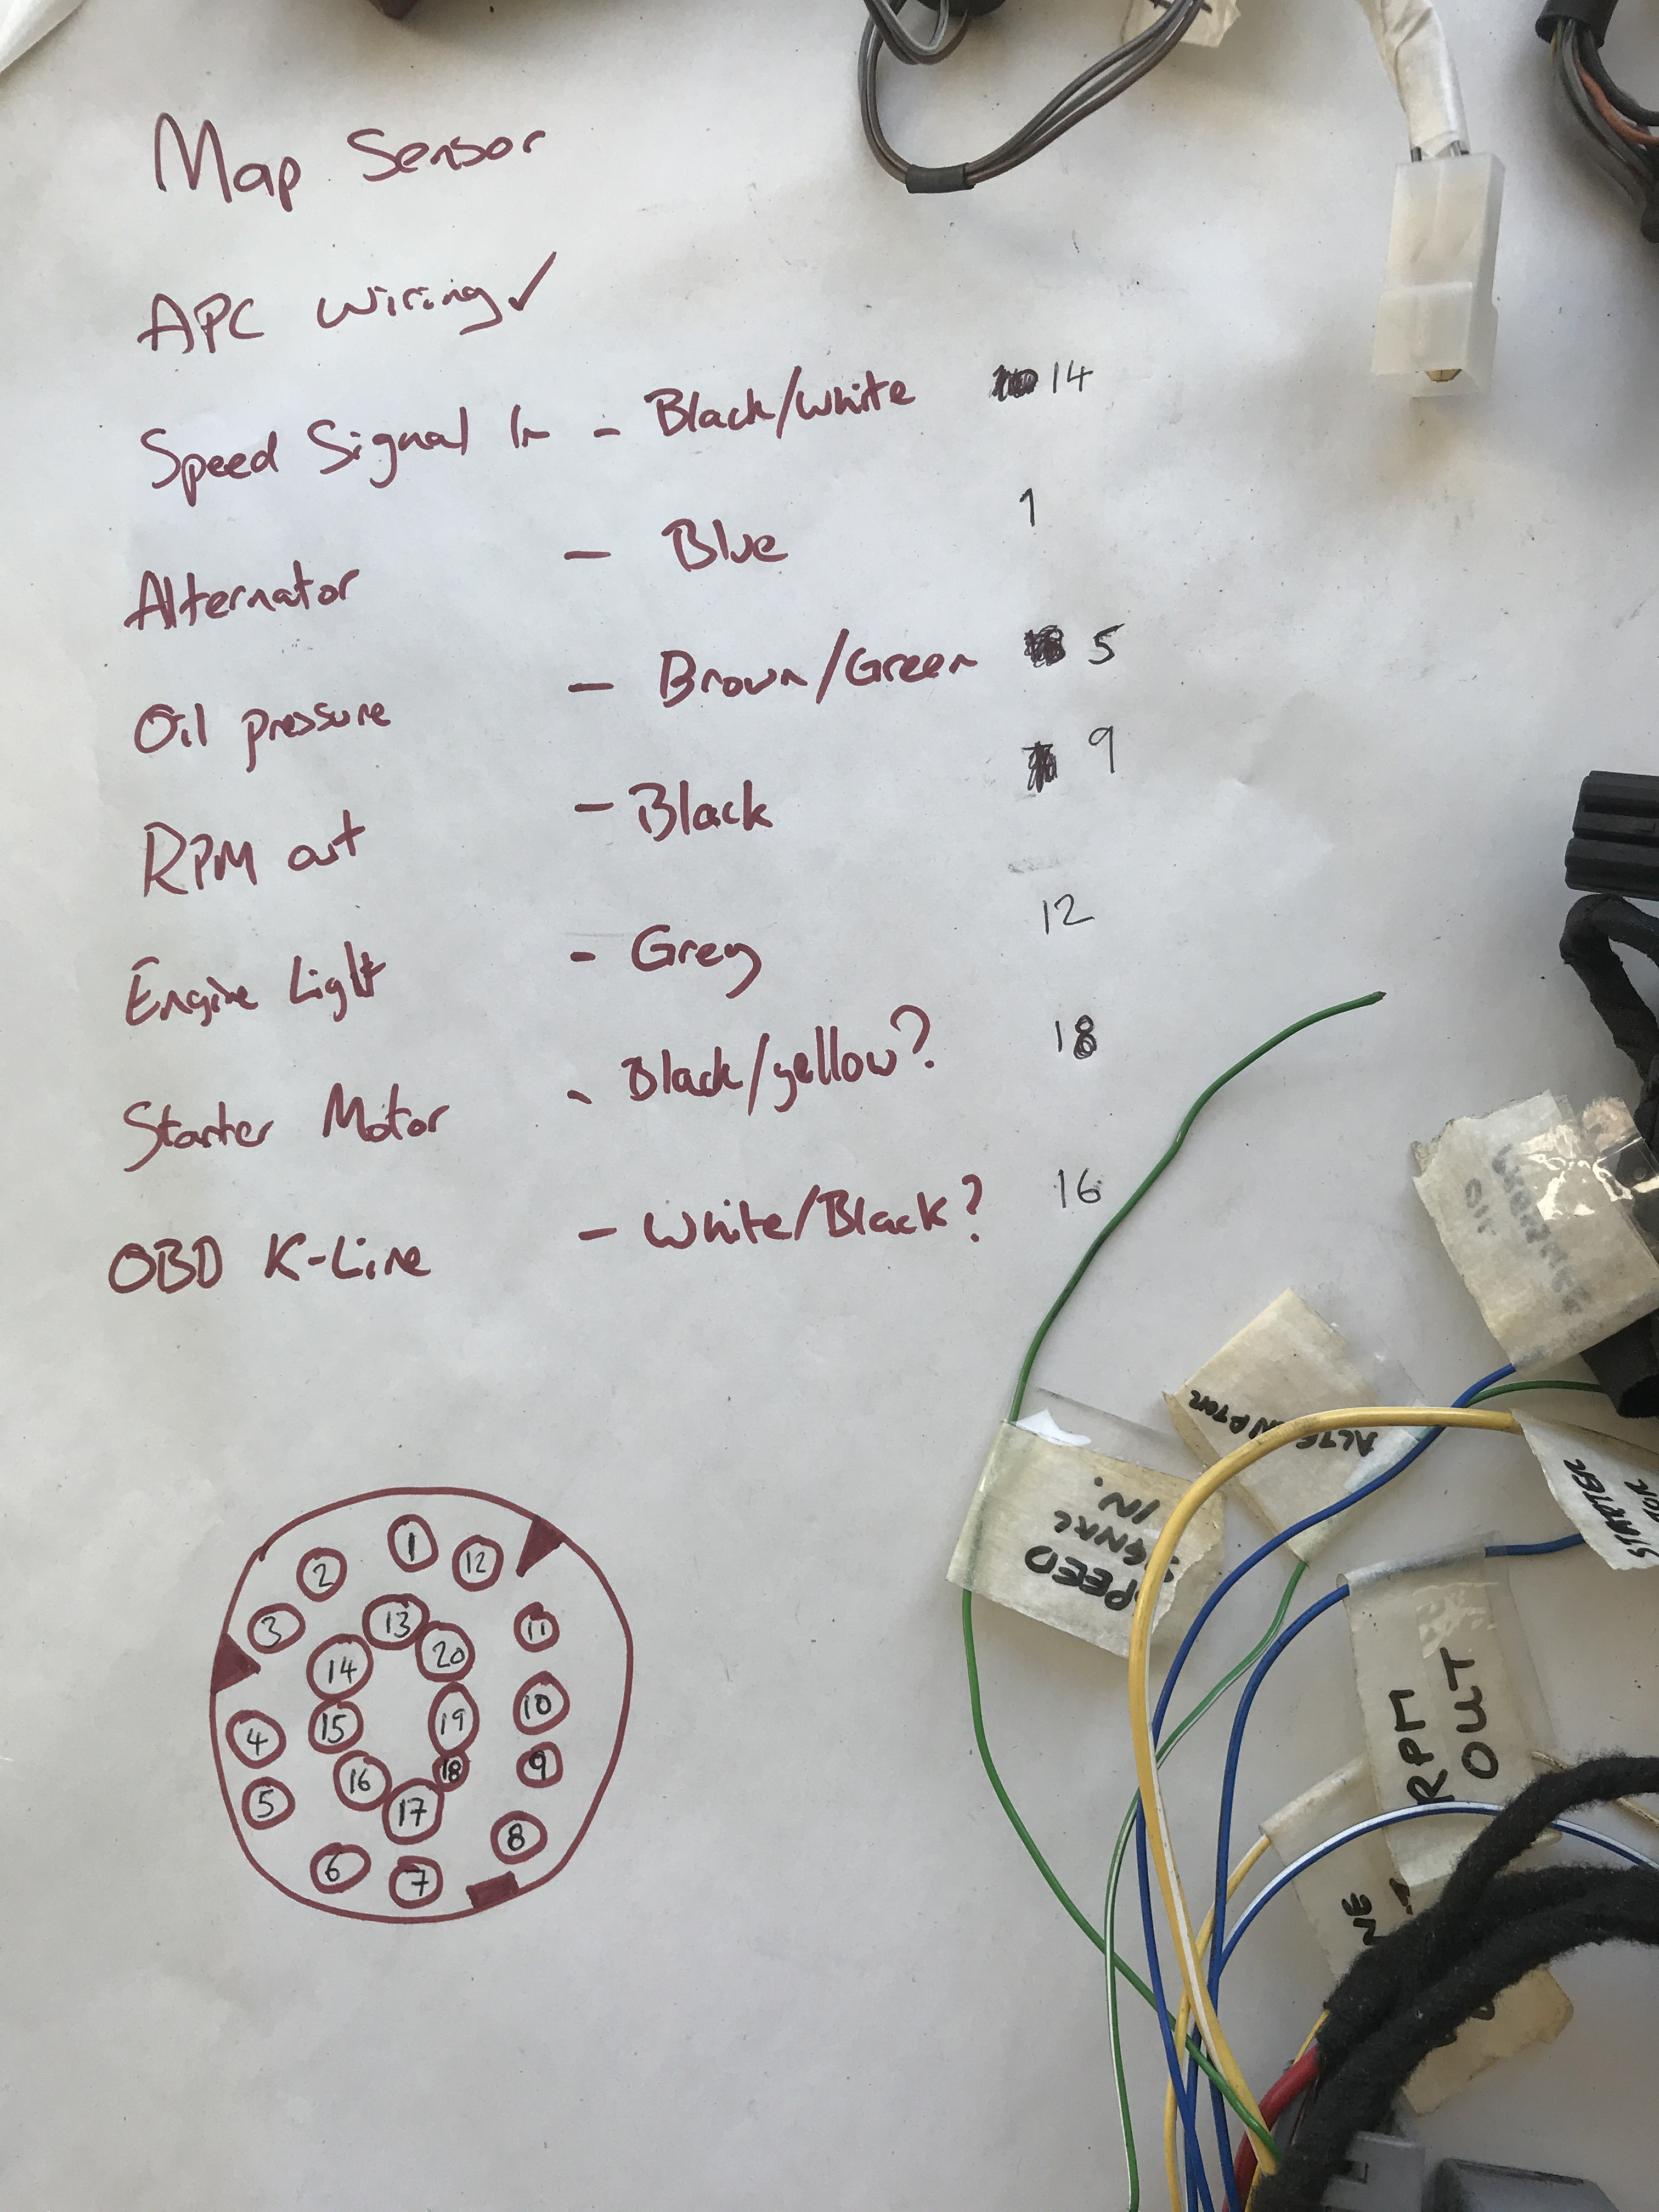 Map Sensor
APC wiring✓
Speed Signal In - Black/white 14
Alternator - Blue 1
Oil pressure - Brown/Green 5
RPM out - Black 9
Engine Light - Grey 12
Starter Motor - Black/yellow? 18
OBD K-Line - White/Black? 16
1
2
12
3
13
11
14
20
4
15
19
10
5
16
18
9
17
6
7
8
OIL
SPEED
SIGNAL
IN.
STARTER
RPM
OUT